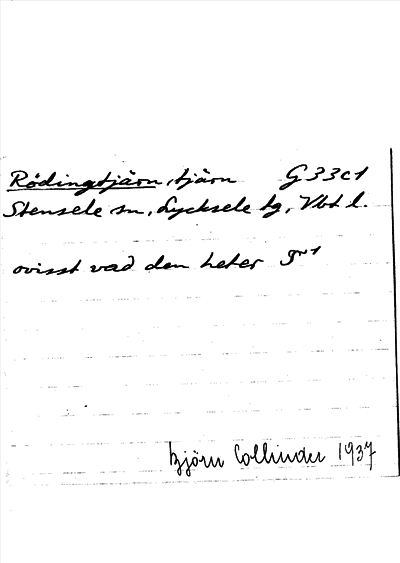 Rödingtjärn, tjärn G 33 c 1
Stensele sn, Lycksele tg, Vbt l.
ovisst vad den heter
Björn Collinder 1937